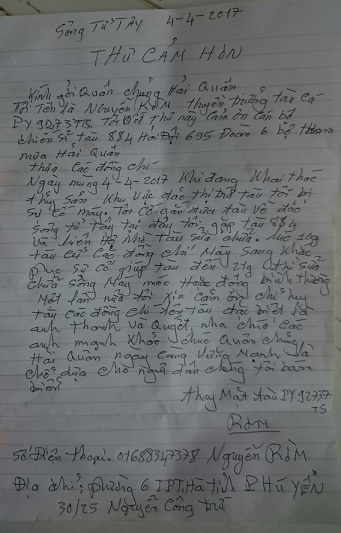 Sông Tử Tây 4-4-2017
THƯ CẢM HƠN
Kính gởi Quân chủng Hải Quân
Tôi Tên là Nguyễn RÒM thuyền trưởng tàu cá
PY 92737 TS Tôi Viết thư này cảm ơn Cán bộ
chiến sĩ tàu 884 Hải Đội 695 Đoàn 6 bộ tham
mưu Hải Quân
thưa các đồng chí
Ngày mùng 4-4-2017 Khi đang Khai thác
thủy sản Khu Vực đảo thì tàu tôi bị
sự cố máy Tôi Cố gắn đưa tàu về đảo
Song tử Tây tại đây tôi gặp tàu 884
và liên Hệ nhờ Tàu Sửa chữa. Lúc
tàu cử các đồng chí Máy sang Khắc
phục sự cố giúp tàu đến 21g thì sửa
chữa xong Máy móc Hoạt động bình thường
Một lần nữa tôi xin cảm ơn chỉ huy
tàu các đồng chí trên tàu đặc biệt là
anh Thanh và Quyết, nhà chúc các
anh mạnh Khỏe chúc Quân chủng
Hải Quân ngày càng Vững Mạnh là
chỗ dựa cho người dân chúng tôi bám
biển
thay Mặt tàu PY 92737
TS
RÒM
Số Điện thoại. 01688347378 Nguyễn RÒM
Địa chỉ, phường 6 TPT. PHÚ YÊN
30/25 Nguyễn Công trứ